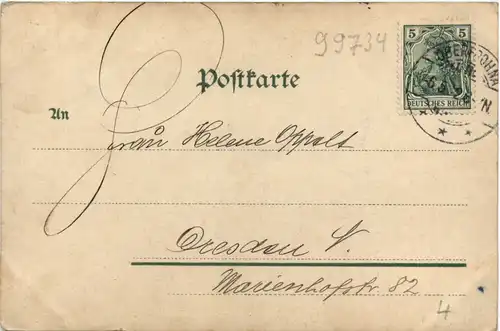 99734
5 5
Postkarte
DEUTSCHES REICH
An
Frau Helene Oppelt
Dresden N.
Marienhofstr. 82
4